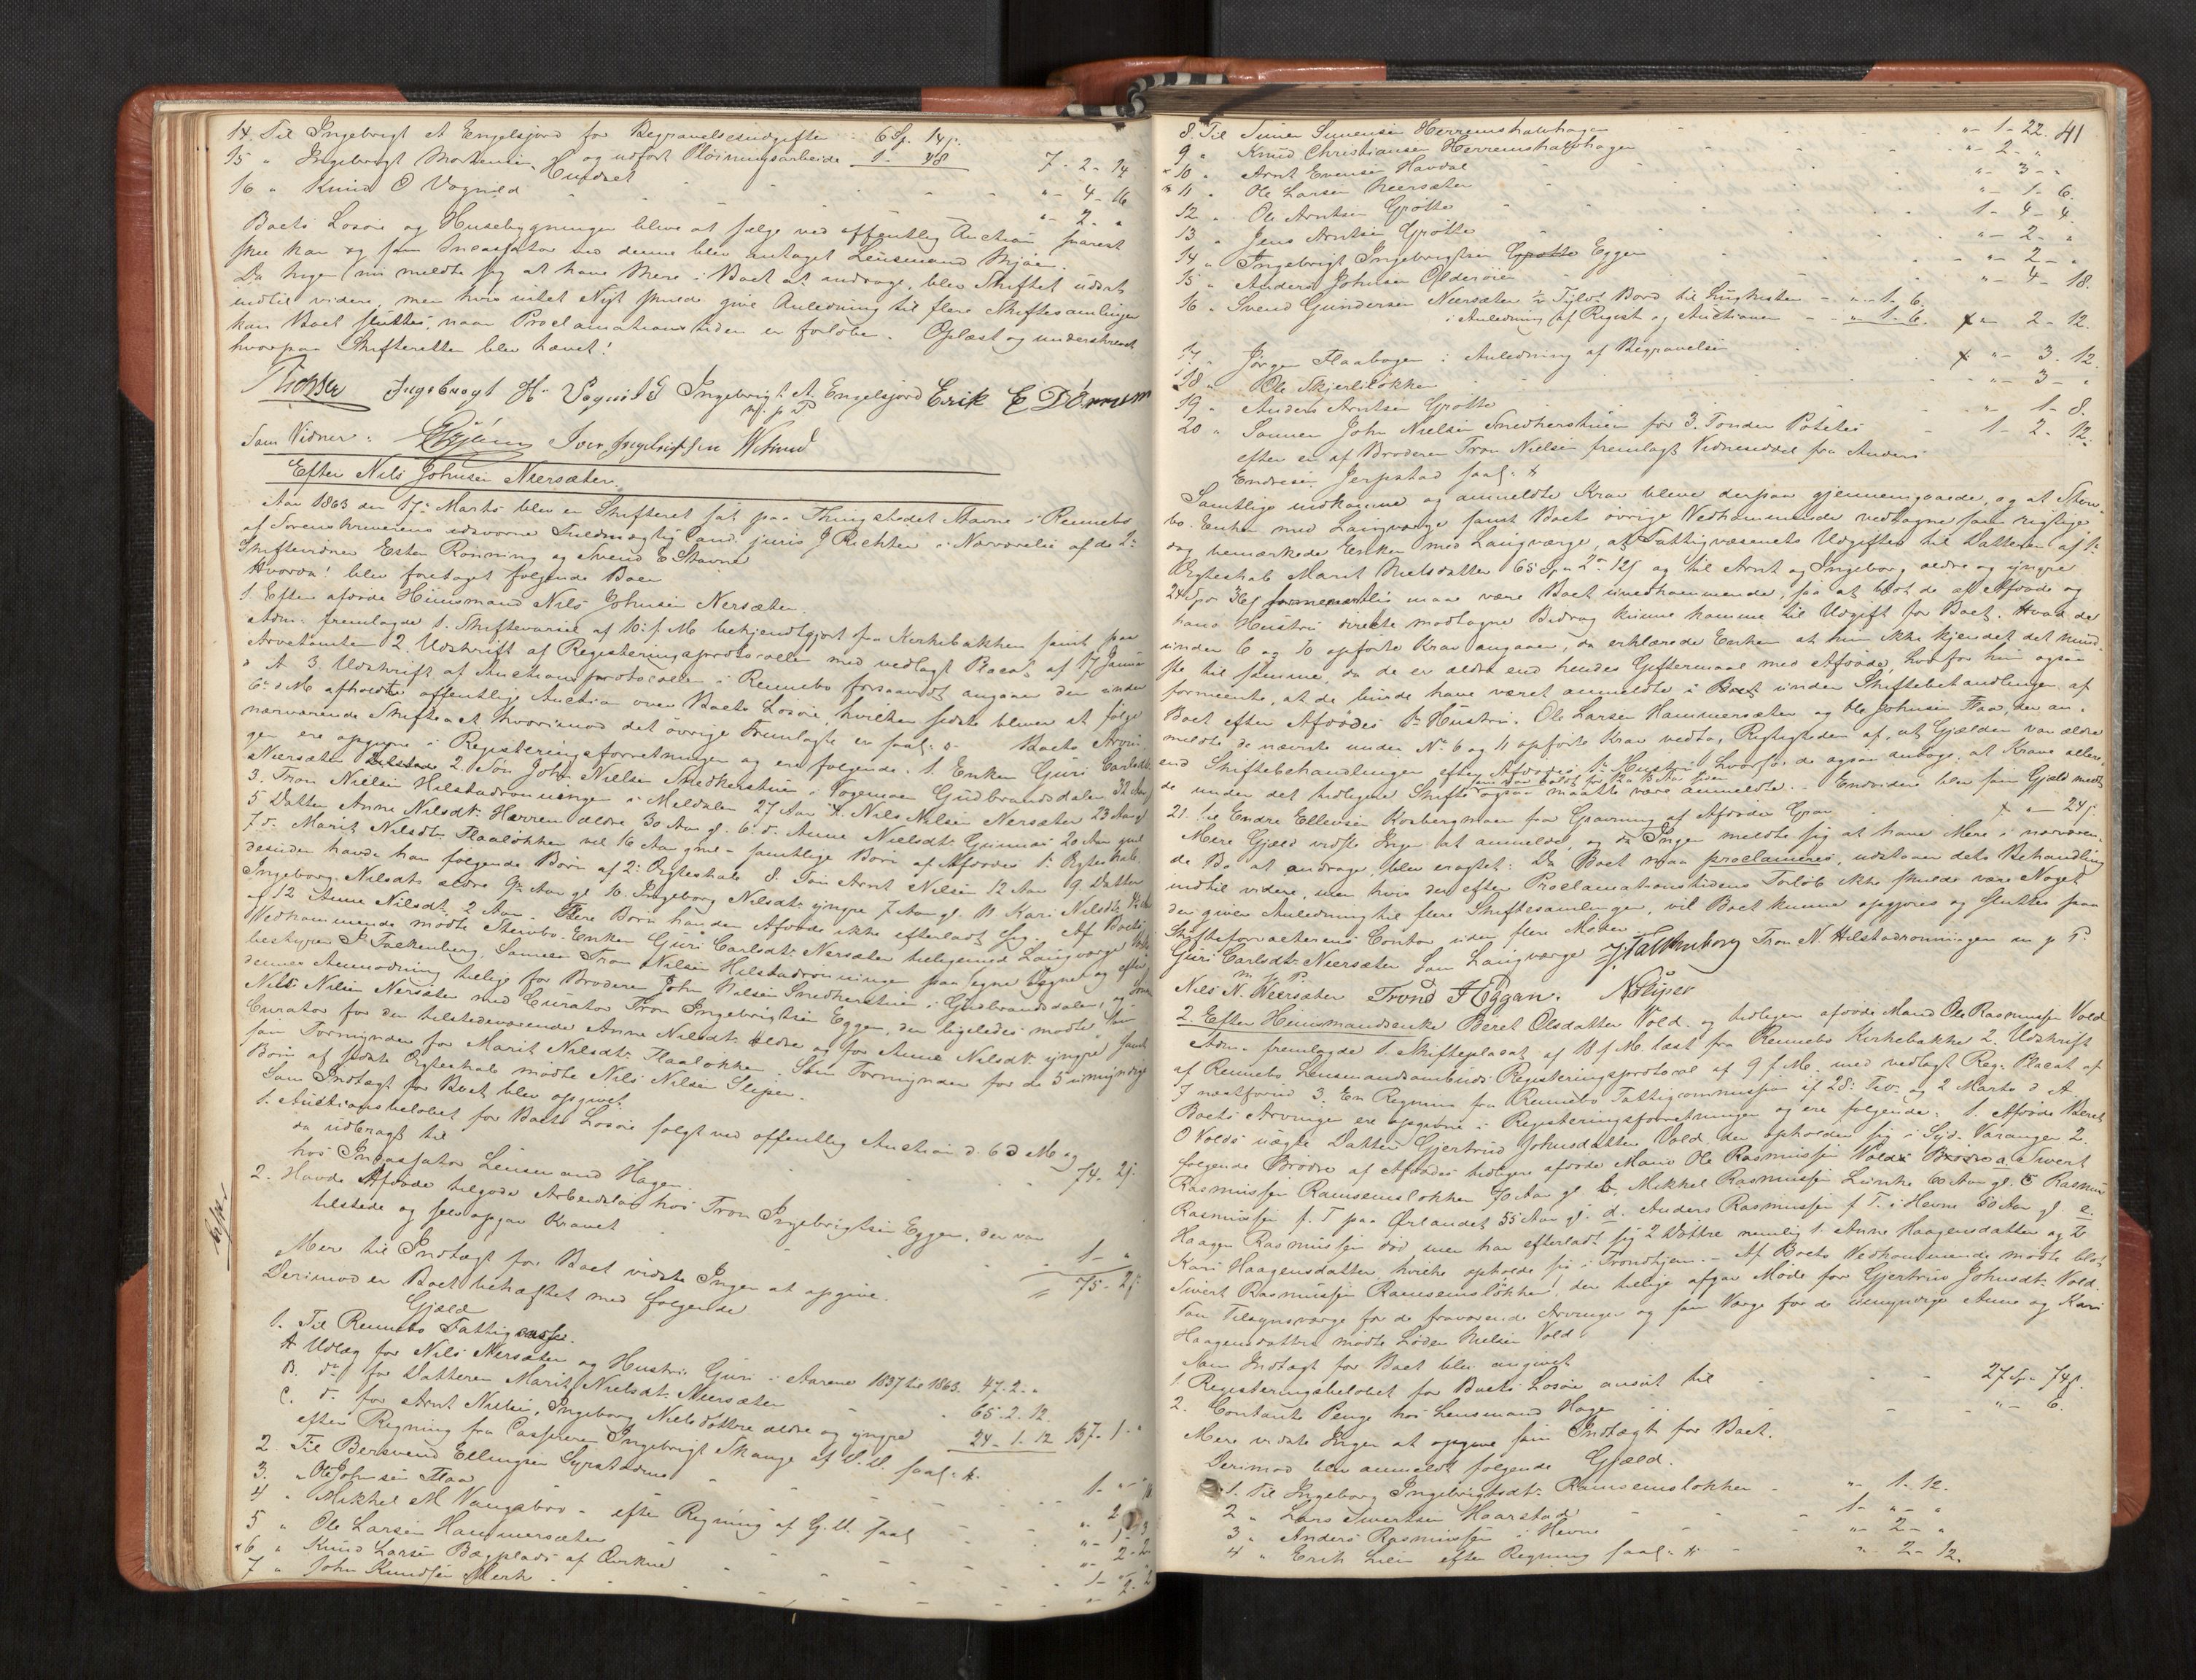 14. Til Ingebrigt A Engelsjord for Begravelsesudgifter 6 Sp. 14 ſ.
og udført Pløiningsarbeide 1. 48 7 - 2 - 14
15 " Ingebrigt Mortensen Hundset " - 4 - 16
16 " Knud O Vognild " - 2 - "
Boets Løsøre og Husebygninger bliver at sælge ved offentlig Auction snarest
skee kan og som Incassator ved denne blev antaget Lensmand Mjøen.
Da Ingen nu meldte sig at have Mere i Boet at andrage, blev Skiftet udsat
indtil videre, men hvis intet Nyt skulde give Anledning til flere Skiftesamlinger
kan Boet sluttes, naar Proclamationstiden er forløben. Oplæst og underskrevet
hvorpaa Skifteretten blev hævet!
Richter Ingebrigt H. Vognild Ingebrigt A. Engelsjord Erik E Dørrum
m. p. P
Som Vidner:
Efter Nils Johnsen Neersæter.
Aar 1863 den 17de Marts blev en Skifteret sat paa Thingstedet Stavne i Rennebo
af Sorenskriverens edsvorne Fuldmægtig Cand. juris J Richter i Nærværelse af de 2de
Skiftevidner Esten Rønning og Svend E Stavne
Hvorda! blev foretaget følgende Boer
1. Efter afdøde Huusmand Nils Johnsen Nersæter.
Adm. fremlagde 1. Skiftevarsel af 10. f. M. bekjendtgjort fra Kirkebakken samt paa
Arvetomten 2. Udskrift af Registreringsprotocollen med vedlagt Placat af 17 Januar
d. A. 3. Udskrift af Auctionsprotocollen i Rennebo forsaavidt angaaer den under
6te d. M. afholdte offentlige Auction over Boets Løsøre, hvilken sidste bliver at følge
nærværende Skifteact hvorimod det øvrige Fremlagte er saal: Boets Arvin-
ger ere opgivne i Registreringsforretningen og ere følgende. 1. Enken Guri Carlsdtr
Neersæter 2. Søn John Nielsen Snedkerstuen i Gudbrandsdalen 32 Aar
3. Tron Nielsen Hilstadrønningen i Meldalen 27 Aar 4. Nils Nilsen Nersæter 23 Aar gl
5 Datter Anne Nilsdtr. Herrem ældre 30 Aar gl. 6. d. Anne Nielsdtr. 20 Aar gml
7 d. Marit Nilsdtr. Flaaløkken vel 16 Aar gml - samtlige Børn af Afdødes 1te Egteskab.
desuden havde han følgende Børn af 2det Ægteskab 8. Søn Arnt Nilsen 12 Aar 9. Datter
Ingeborg Nilsdtr. ældre 9 Aar gl. 10. Ingeborg Nilsdtr. yngre 7 Aar gl. 11 Kari Nilsdtr.
og 12 Anne Nilsdt. 2 Aar. Flere Børn har den Afdøde ikke efterladt sig. Af Boets
Vedkommende mødte Stervbo-Enken Guri Carlsdtr. Nersæter tilligemed Laugværge
bestyrer J. Falkenberg, Sønnen Tron Nilsen Hilstadrønningen paa egne Vegne og efter
dennes Anmodning tillige for Broderen John Nilsen Snedkerstuen i Gudbrandsdalen, og
Nils Nilsen Nersæter med Curator Tron Ingebrigtsen Eggen, der ligeledes mødte som
Curator for den tilstedeværende Anne Nilsdtr. ældre og for Anne Nilsdtr. yngre samt
som Formynder for Marit Nilsdtr. Flaaløkken. Som Formynder for de 5 umyndige
Børn af sidste Egteskab mødte Nils Nilsen Sliper.
Som Indtægt for Boet blev opgivet.
1. Auctionsbeløbet for Boets Løsøre solgt ved offentlig Auction d. 6 d. M. og
da udbragt til
hos Incassator Lensmand Hagen. 74 - 2 ſ.
2. Havde Afdøde tilgode Arbeidsløn hos Tron Ingebrigtsen Eggen, der var
tilstede og selv opgav Kravet 1 - "
Mere til Indtægt for Boet vidste Ingen at opgive. = 75 - 2 ſ
Derimod er Boet behæftet med følgende
Gjæld
1. Til Rennebo Fattigcasse.
A Udlæg for Nils Nersæter og Hustru Guri i Aarene 1837 til 1863. 47. 2. "
B. do for Datteren Marit Nielsdtr. Neersæter 65. 2. 12.
C. d. for Arnt Nielsen, Ingeborg Nielsdøttre ældre og yngre
efter Regning fra Casserer Ingebrigt Skauge af D. D. saal: 24 - 1 - 12 137 - 1 - "
2. Til Bersvend Ellingsen 1 - " -
3. " Ole Johnsen Flaa
4 " Mikkel M Vangsbro - efter Regning af G. D. saal
5 " Ole Larsen Hammersæter
6 " Knud Larsen Bøgplads af Ørkned
7 " John Knudsen Merk
41
8. Til Simen Simensen Herremshalvhagen " - 1 - 22.
9 " Knud Christiansen Herremshalvhagen " - 2 - "
10 " Arnt Evensen Havdal " - 3 - "
11 " Ole Larsen Neersæter " - 1 - 6.
12 " Ole Arntsen Grøtte 1 - 4 - 4.
13 " Jens Arntsen Grøtte " - 2 - "
14 " Ingebrigt Ingebrigtsen Grøtte Eggen " - 2 - "
15 " Anders Johnsen Olderøien " - 4 - 18.
16 " Svend Gundersen Neersæter ½ Tylvt Bord til Liigkisten - " - 1. 6.
i Anledning af Regist. og Auctionen - " 1. 6. " 2 - 12.
17 " Jørgen Flaahagen i Anledning af Begravelsen " - 3 - 12.
18 " Ole Skjerliløkken " - 3 - "
19 " Anders Arntsen Grøtte " - 1 - 8.
20 " Sønnen John Nielsen Snedkerstuen for 3. Tønder Poteter 1 - 2 - 12.
efter en af Broderen Tron Nielsen fremlagt Vidneseddel fra Anders
Endresen Jerpstad saal:
Samtlige indkomne og anmeldte Krav bleve derpaa gjennemgaaede, og af Sterv-
bo-Enken med Laugværge samt Boets øvrige Vedkommende vedtagne som rigtige
dog bemærkede Enken med Laugværge, at Fattigvæsenets Udgifter til Datteren af 1te
Ægteskab Marit Nielsdatter 65 Sp. 2 12 ſ og til Arnt og Ingeborg ældre og yngre
24 Sp. 36 ſ formeentlig maae være Boet uvedkommende, saa at blot de af Afdøde og
hans Hustru directe modtagne Bidrag kunne komme til Udgift for Boet. Hvad de
under 6 og 10 opførte Krav angaaer, da erklærede Enken at hun ikke kjendte det mind-
ste til samme, da de er ældre end hendes Giftermaal med Afdøde, hvorfor hun ogsaa
formeente, at de burde have været anmeldte i Boet under Skiftebehandlingen af
Boet efter Afdødes 1te Hustru. Ole Larsen Hammersæter og Ole Johnsen Flaa, der an-
meldte de nævnte under No 6 og 11 opførte Krav vedtog Rigtigheden af, at Gjælden var ældre
end Skiftebehandlingen efter Afdødes 1te Hustru hvorfor de ogsaa antog, at Kravene aller-
som var holdt for 12 a 13 Aar siden
de under det tidligere Skifte ogsaa maatte være anmeldte. - Endvidere blev som Gjæld medt.
21. til Endre Ellevsen Korbergmoen for Gravning af Afdødes Grav " - 24 ſ.
Mere Gjæld vidste Ingen at anmelde, og da Ingen meldte sig at have Mere i nærværen-
de Bo at andrage, blev eragtet: Da Boet maa proclameres, udstaaer dets Behandling
indtil videre, men hvis der efter Proclamationstidens Forløb ikke skulde være Noget
der giver Anledning til flere Skiftesamlinger, vil Boet kunne opgjøres og sluttes paa
Skifteforvalterens Contor uden flere Møder
Guri Carlsdtr. Neersæter Som Laugværge J. Falkenberg Tron N. Hilstadrønningen m. p. P.
m. p. P.
Nils N. Neersæter Trond I Eggan. N Sliper
2. Efter Huusmandsenke Beret Olsdatter Vold. og tidligere afdøde Mand Ole Rasmussen Vold
Adm. fremlagde 1. Skifteplacat af 10 f. M. læst fra Rennebo Kirkebakke 2. Udskrift
af Rennebo Lensmandsombuds Registreringsprotocol af 9 f. M. med vedlagt Reg. Placat af
7 næstforud 3. En Regning fra Rennebo Fattigcommission af 28. Febr. og 2 Marts d. A.
Boets Arvinger ere opgivne i Registreringsforretningen og ere følgende: 1. Afdøde Beret
O Volds uægte Datter Gjertrud Johnsdatter Vold der opholder sig i Syd-Varanger 2.
følgende Brødre af Afdødes tidligere afdøde Mand Ole Rasmussen Vold: a. Sivert
Rasmussen Ramsemsløkken 70 Aar gl. b. Mikkel Rasmussen 60 Aar gl. c. Rasmus
Rasmussen f. T. paa Ørlandet 55 Aar gl. d. Anders Rasmussen f. T. i Hevne 50 Aar gl. e.
Haagen Rasmussen død, men har efterladt sig 2 Døttre nemlig 1. Anne Haagensdatter og 2
Kari Haagensdatter hvilke opholde sig i Trondhjem. - Af Boets Vedkommende mødte blot
Sivert Rasmussen Ramsemsløkken, der tillige afgav Møde for Gjertrud Johnsdtr. Vold.
Som Tilsynsværge for de fraværende Arvinger og som Værge for de umyndige Anne og Kari
Haagensdøttre mødte Loden Nielsen Vold
Som Indtægt for Boet blev angivet
1. Registreringsbeløbet for Boets Løsøre ansat til 27 Sp. 74 ſ.
2. Contante Penge hos Lensmand Hagen " - 6.
Mere vidste Ingen at opgive som Indtægt for Boet.
Derimod blev anmeldt følgende Gjæld.
1. Til Ingeborg Ingebrigtsdtr. Ramsemsløkken " - 1 - 12.
2 " Lars Sivertsen Haarstad 1 - " - "
3 " Anders Rasmussen i Hevne " - 2 - "
4 " Erik Lien efter Regning saal: " - 2 - 12.